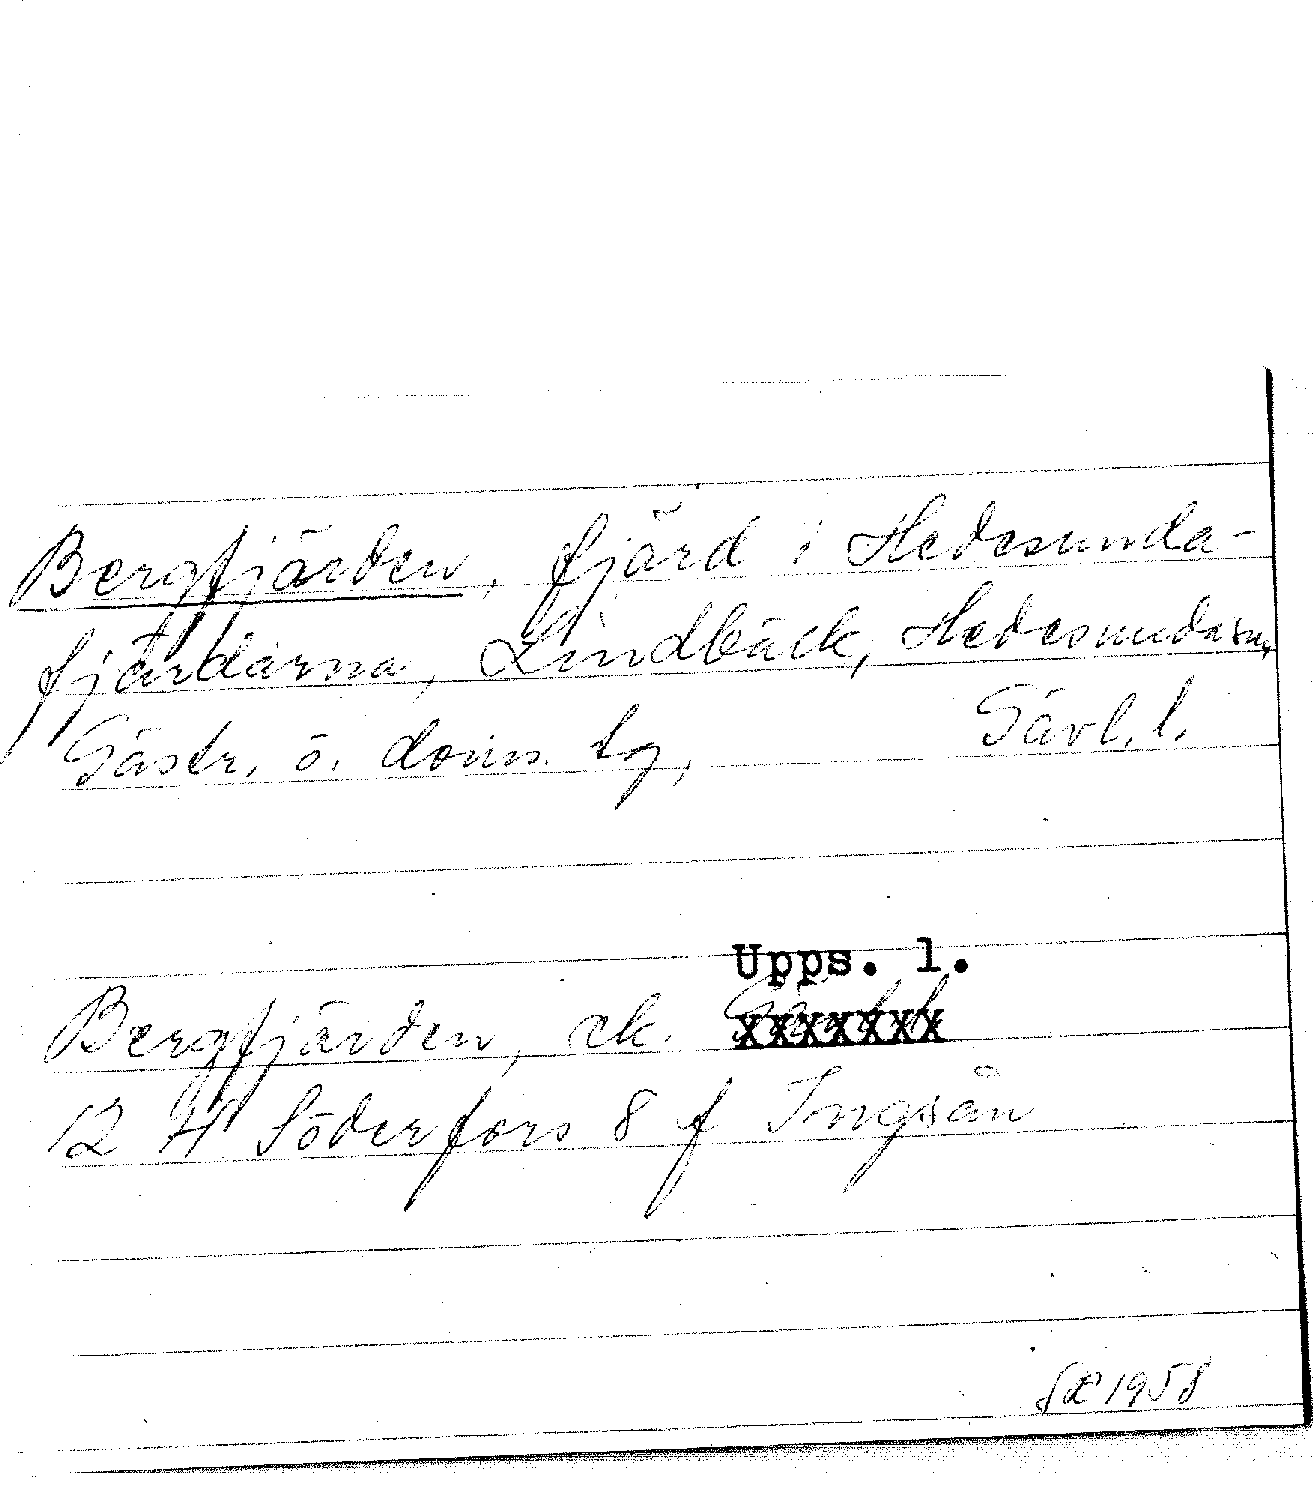 Bergfjärden, fjärd i Hedesunda-
fjärdarna, Lindbäck, Hedesunda sn,
Gästr. ö. doms. tg, Gävl. l.
Upps. l.
Bergfjärden, ek. xxxxxxx
12 H Söderfors 8 f Jngsån
1958